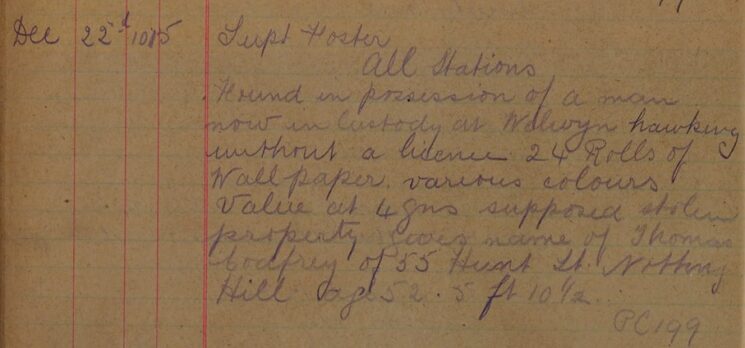 Dec 22d 1015 Supt Foster
All Stations
Found in possession of a man
now in custody at Welwyn hawking
without a licence 24 Rolls of
Wall paper. various colours
Value at 4 gns supposed stolen
property gives name of Thomas
Godfrey of 55 Hunt St. Notting
Hill age 52. 5 ft 10 1/2
PC 199